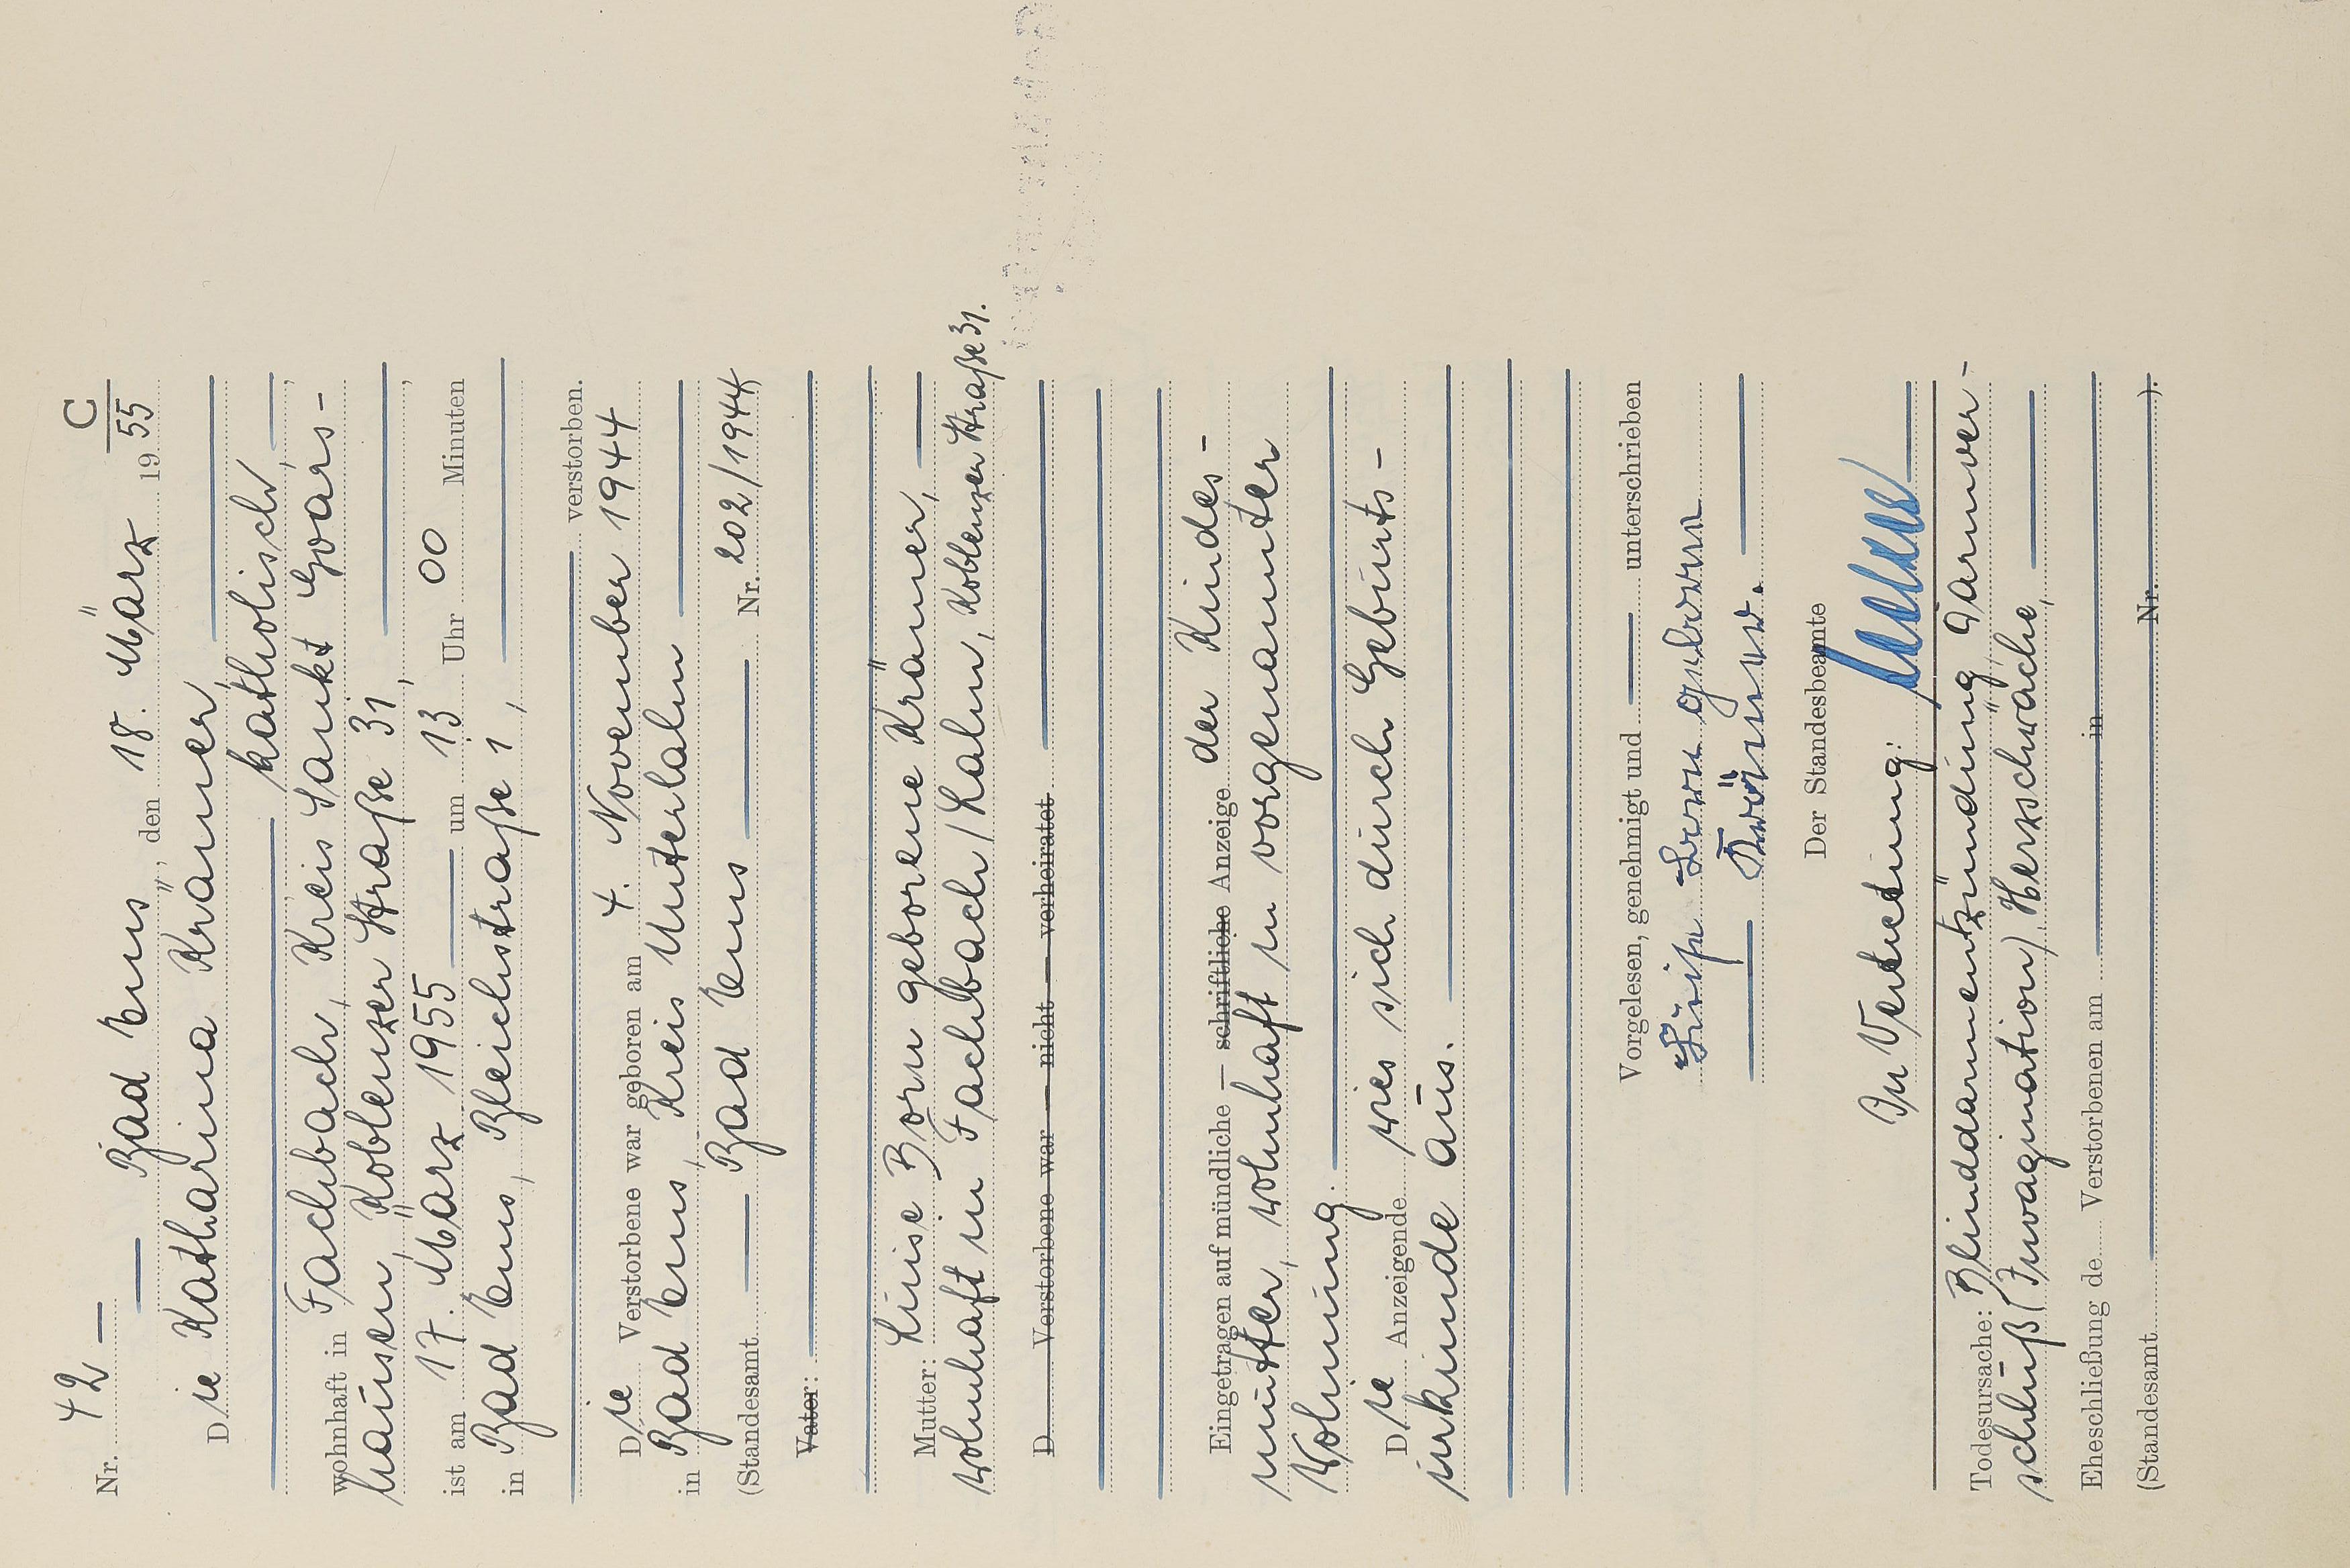 C
Nr. 42 —
— Bad Ems, den 18. März 1955
Die Katharina Krämer, —
— katholisch, —
wohnhaft in Fachbach, Kreis Sankt Goars-
hausen, Koblenzer Straße 31, —
ist am 17. März 1955 — um 13 Uhr 00 Minuten
in Bad Ems, Bleichstraße 1, —
— verstorben.
Die Verstorbene war geboren am 4. November 1944
in Bad Ems, Kreis Unterlahn —
(Standesamt — Bad Ems — Nr. 202/1944)
Vater: —
Mutter: Luise Born geborene Krämer, —
wohnhaft in Fachbach/Lahn, Koblenzer Straße 31.
D Verstorbene war — nicht — verheiratet —
Eingetragen auf mündliche — schriftliche Anzeige der Kindes-
mutter, wohnhaft in vorgenannter
Wohnung. —
Die Anzeigende wies sich durch Geburts-
urkunde aus. —
Vorgelesen, genehmigt und — unterschrieben
Luise Born geborn
— Krämer. —
Der Standesbeamte
In Vertretung:
Todesursache: Blinddarmentzündung, Darmver-
schluß (Invagination) Herzschwäche, —
Eheschließung de Verstorbenen am — in —
(Standesamt — Nr. ).